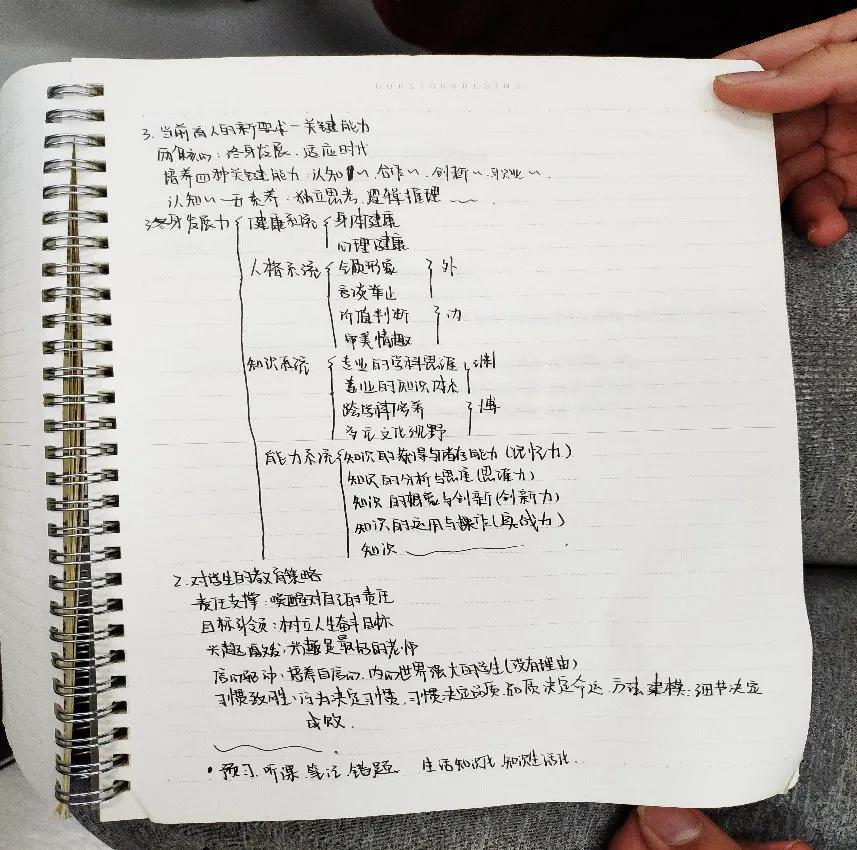 OURSTORYBEGINS
3. 当前育人的新要求－关键能力
两个核心：终身发展、适应时代
培养四种关键能力，认知～、合作～、创新～、职业～.
认知～－素养：独立思考，逻辑推理 ～
终身发展力 健康系统 身体健康
心理健康
人格系统 气质形象 外
言谈举止
价值判断 内
审美情趣
知识系统 专业的学科思维 渊
专业的知识
跨学科培养 博
多元文化视野
能力系统 知识的获得与储存能力 (记忆力)
知识的分析与思维 (思维力)
知识的想象与创新 (创新力)
知识的运用与操作 (实战力)
知识
2. 对学生的教育策略
责任支撑：唤醒对自己的责任
目标引领：树立人生奋斗目标
兴趣启发：兴趣是最好的老师
信心驱动：培养自信心，内心世界强大的学生 (没有理由)
习惯致胜：行为决定习惯，习惯决定品质，品质决定命运，方法建模：细节决定
成败.
• 预习、听课、笔记、错题. 生活知识化 知识生活化.